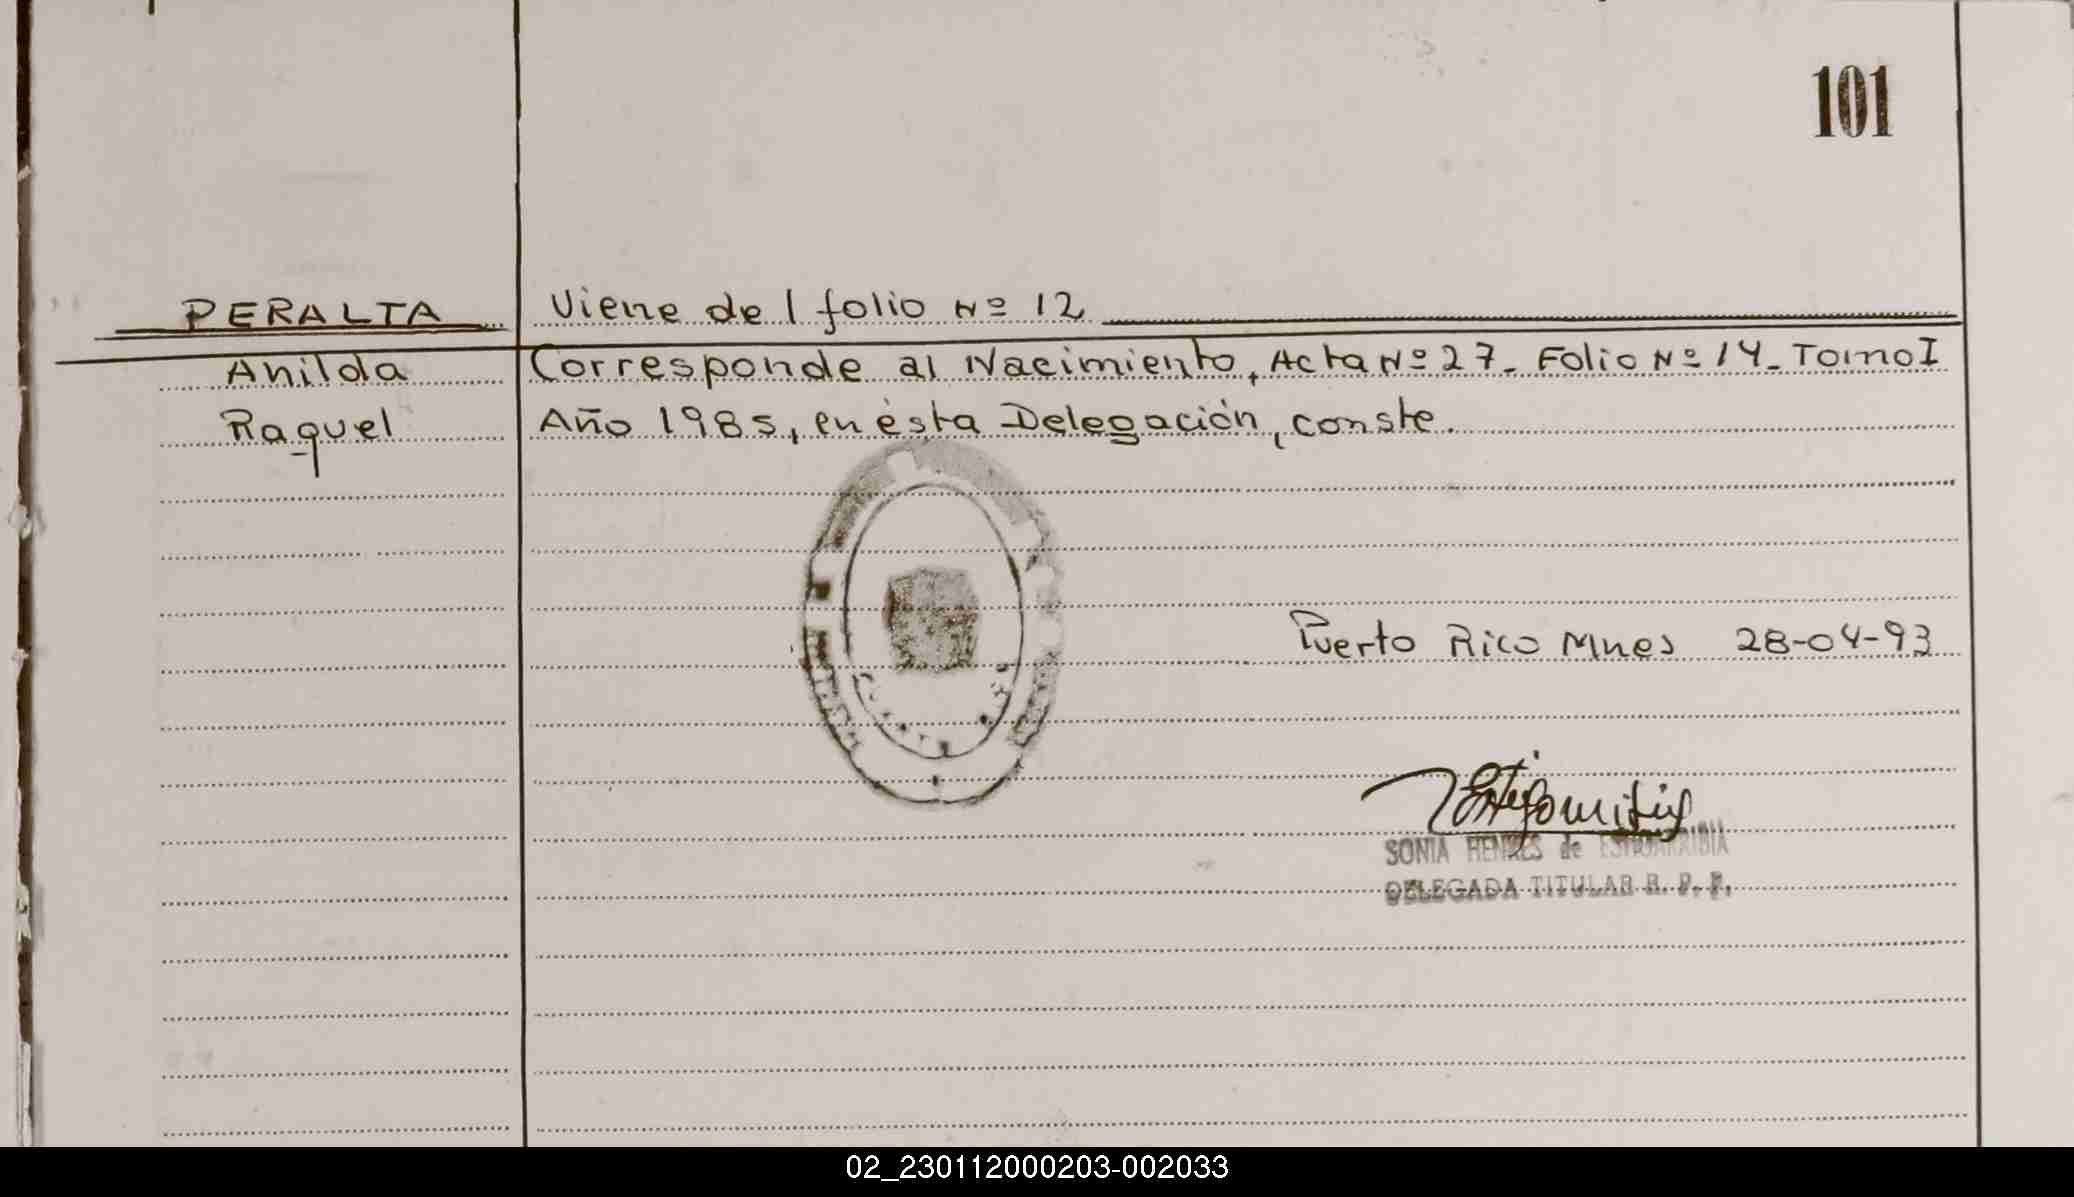 101
PERALTA Viene del folio Nº 12
Anilda Corresponde al Nacimiento, Acta Nº 27. Folio Nº 14. Tomo I
Raquel Año 1985, en ésta Delegación, conste.
Puerto Rico Mnes 28-04-93
SONIA HENRES de ESTIGARRIBIA
DELEGADA TITULAR R. P. P.
02_230112000203-002033